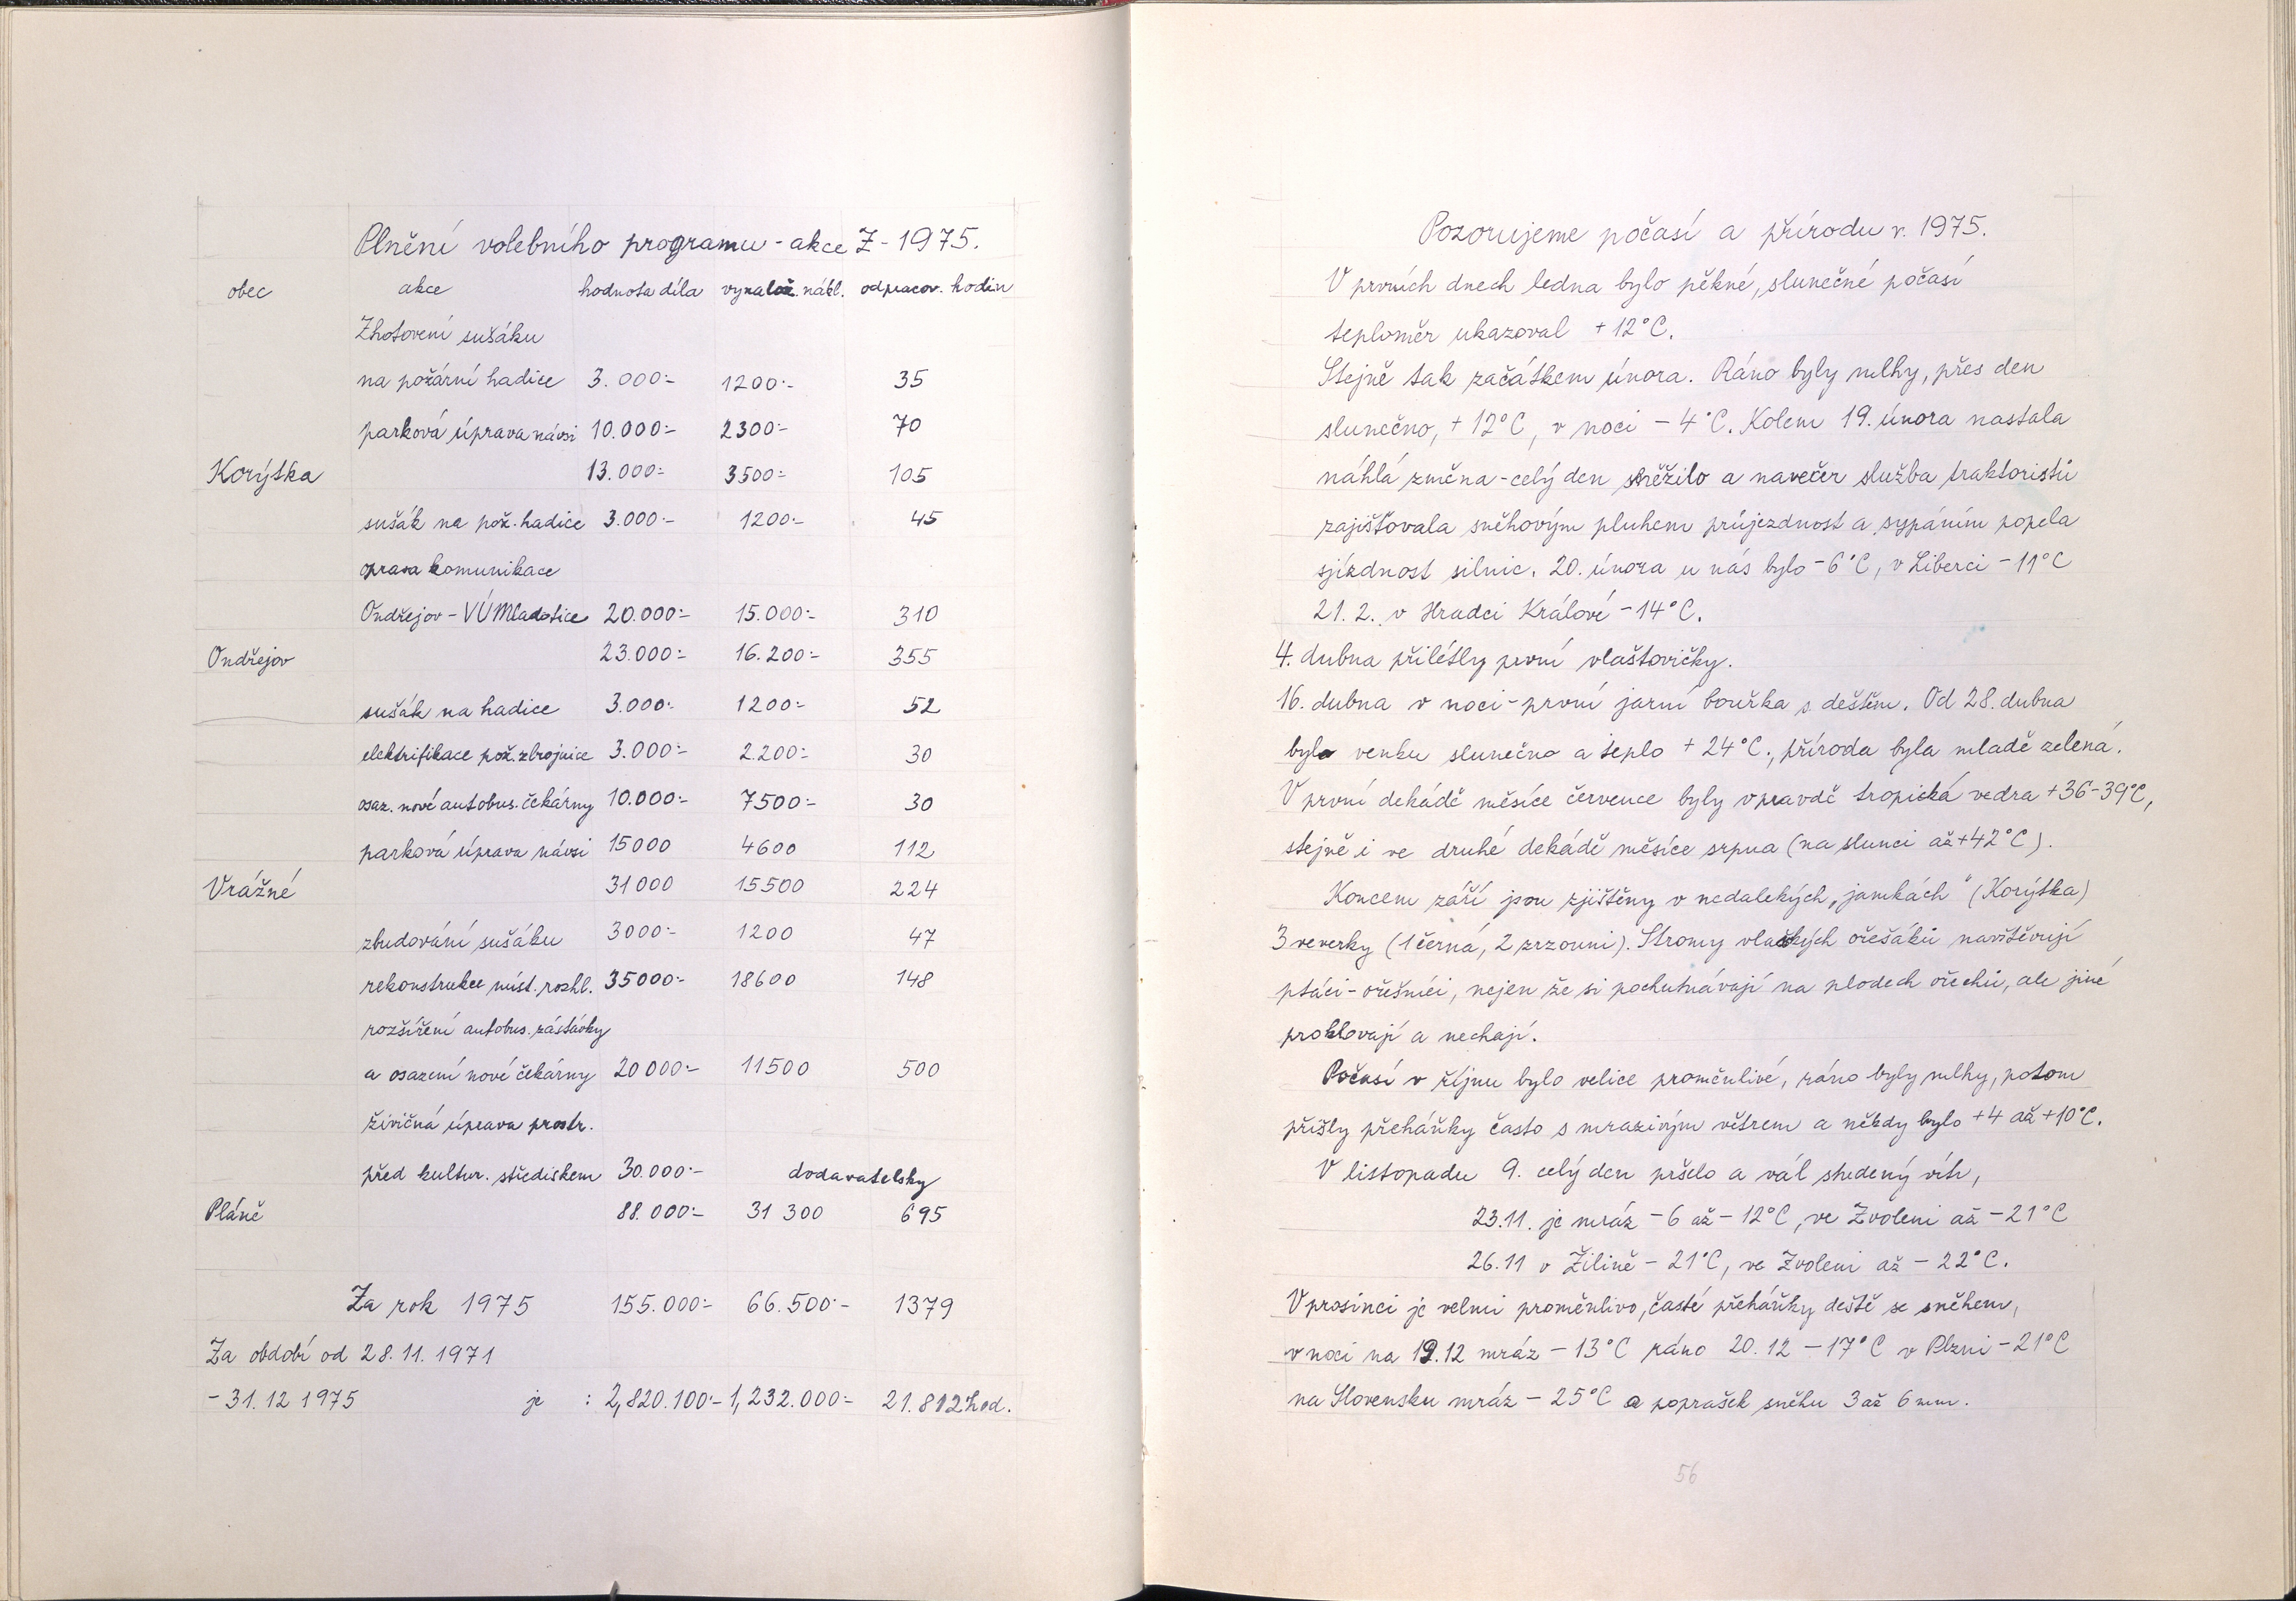 Plnění volebního programu - akce Z - 1975.
obec akce hodnota díla vynalož. nákl. odpracov. hodin
Zhotovení sušáku
na požární hadice 3.000:- 1200:- 35
parková úprava návsi 10.000:- 2300:- 70
Korýtka 13.000:- 3500:- 105
sušák na pož. hadice 3.000:- 1200:- 45
oprava komunikace
Ondřejov - VÚ Mladotice 20.000:- 15.000:- 310
Ondřejov 23.000:- 16.200:- 355
sušák na hadice 3.000:- 1200:- 52
elektrifikace pož. zbrojnice 3.000:- 2.200:- 30
osaz. nové autobus. čekárny 10.000:- 7500:- 30
parková úprava návsi 15000 4600 112
Vrážné 31000 15500 224
zbudování sušáku 3000:- 1200 47
rekonstrukce míst. rozhl. 35000:- 18600 148
rozšíření autobus. zástávky
a osazení nové čekárny 20000:- 11500 500
živičná úprava prostr.
před kultur. střediskem 30.000:- dodavatelsky
Pláně 88.000:- 31 300 695
Za rok 1975 155.000:- 66.500:- 1379
Za období od 28.11.1971
- 31.12 1975 je : 2,820.100:- 1,232.000:- 21.812 hod.
Pozorujeme počasí a přírodu r. 1975.
V prvních dnech ledna bylo pěkné, slunečné počasí
teploměr ukazoval +12°C.
Stejně tak začátkem února. Ráno byly mlhy, přes den
slunečno, +12°C, v noci -4°C. Kolem 19. února nastala
náhlá změna - celý den sněžilo a navečer služba traktoristů
zajišťovala sněhovým pluhem průjezdnost a sypáním popela
sjízdnost silnic. 20. února u nás bylo -6°C, v Liberci -11°C
21.2. v Hradci Králové -14°C.
4. dubna přilétly první vlaštovičky.
16. dubna v noci - první jarní bouřka s deštěm. Od 28. dubna
bylo venku slunečno a teplo +24°C., příroda byla mladě zelená.
V první dekádě měsíce července byly vpravdě tropická vedra +36-39°C,
stejně i ve druhé dekádě měsíce srpna (na slunci až +42°C).
Koncem září jsou zjištěny v nedalekých „jamkách" (Korýtka)
3 veverky (1 černá, 2 zrzouni). Stromy vlašských ořešáků navštěvují
ptáci - ořešníci, nejen že si pochutnávají na plodech ořechů, ale jiné
proklovají a nechají.
Počasí v říjnu bylo velice proměnlivé, ráno byly mlhy, potom
přišly přeháňky často s mrazivým větrem a někdy bylo +4 až +10°C.
V listopadu 9. celý den pršelo a vál studený vítr,
23.11. je mráz -6 až -12°C, ve Zvoleni až -21°C
26.11 v Žilině -21°C, ve Zvoleni až -22°C.
V prosinci je velmi proměnlivo, časté přeháňky deště se sněhem,
v noci na 19.12 mráz -13°C ráno 20.12 -17°C v Plzni -21°C
na Slovensku mráz -25°C a poprašek sněhu 3 až 6 mm.
56